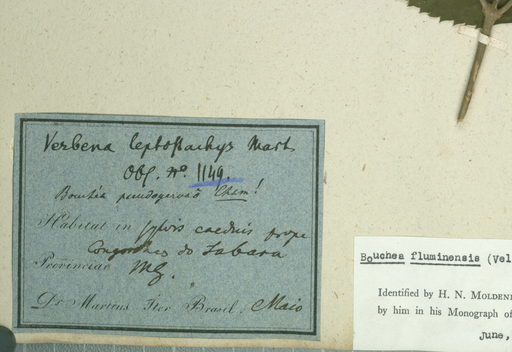 Verbena leptostachys Mart.
Obs. No. 1149.
Bouchea pseudogervaõ Cham!
Habitat in sylvis caeduis prope
Congonhas do Sabara
Provinciae MG.
Dr. Martius Iter Brasil. Maio
Bouchea fluminensis (Vel
Identified by H. N. MOLDEN
by him in his Monograph of
June,